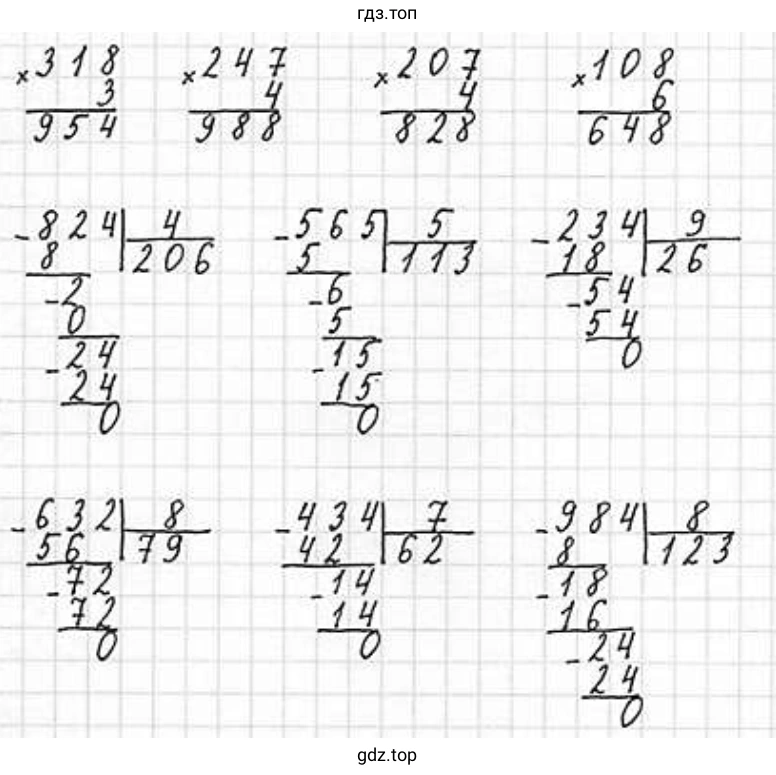 гдз.топ
× 318 × 247 × 207 × 108
3 4 4 6
954 988 828 648
- 824 | 4 - 565 | 5 - 234 | 9
8 | 206 5 | 113 18 | 26
- 2 - 6 - 54
0 5 54
- 24 - 15 0
24 15
0 0
- 632 | 8 - 434 | 7 - 984 | 8
56 | 79 42 | 62 8 | 123
- 72 - 14 - 18
72 14 16
0 0 - 24
24
0
gdz.top